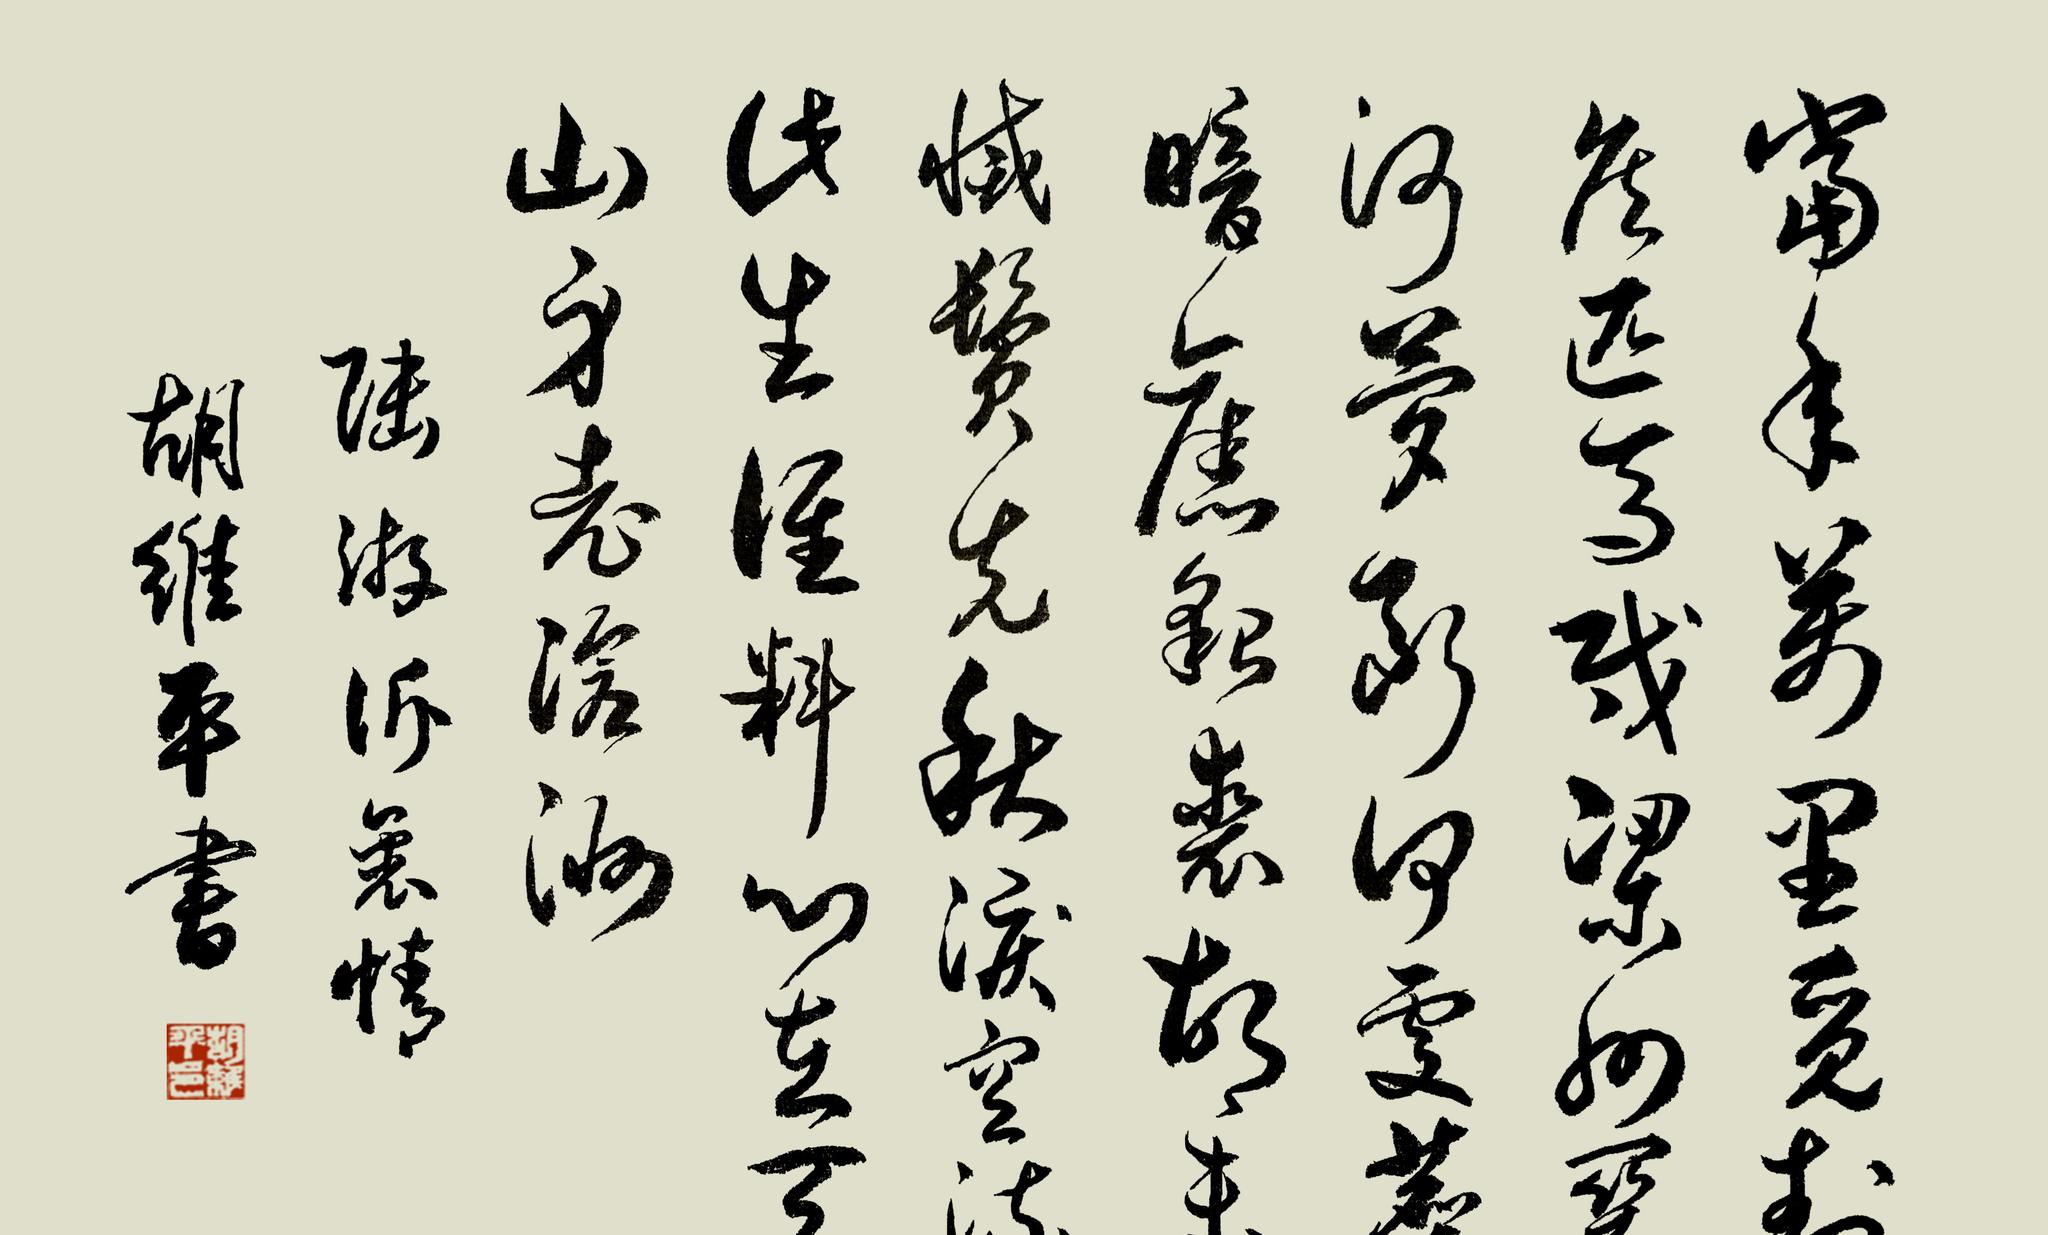 當年萬里覓封
侯匹馬戍梁州關
河夢斷何處塵
暗舊貂裘胡未
滅鬢先秋淚空流
此生誰料心在天
山身老滄洲
陸游訴衷情
胡維平書
胡維平印